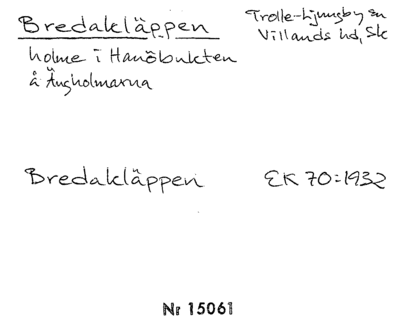 Bredakläppen
Trolle-Ljungby sn
Villands hd, Sk
holme i Hanöbukten
å Ängholmarna
Bredakläppen
EK 70:1932
Nr 15061